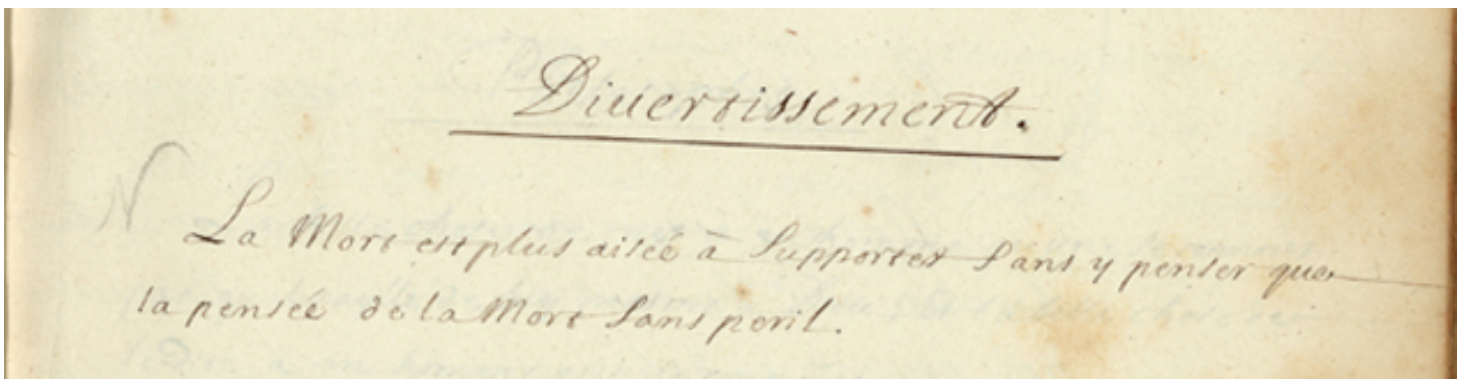 Diuertissement.
N
La Mort est plus aisée à Supporter Sans y penser que
la pensée de la Mort Sans peril.